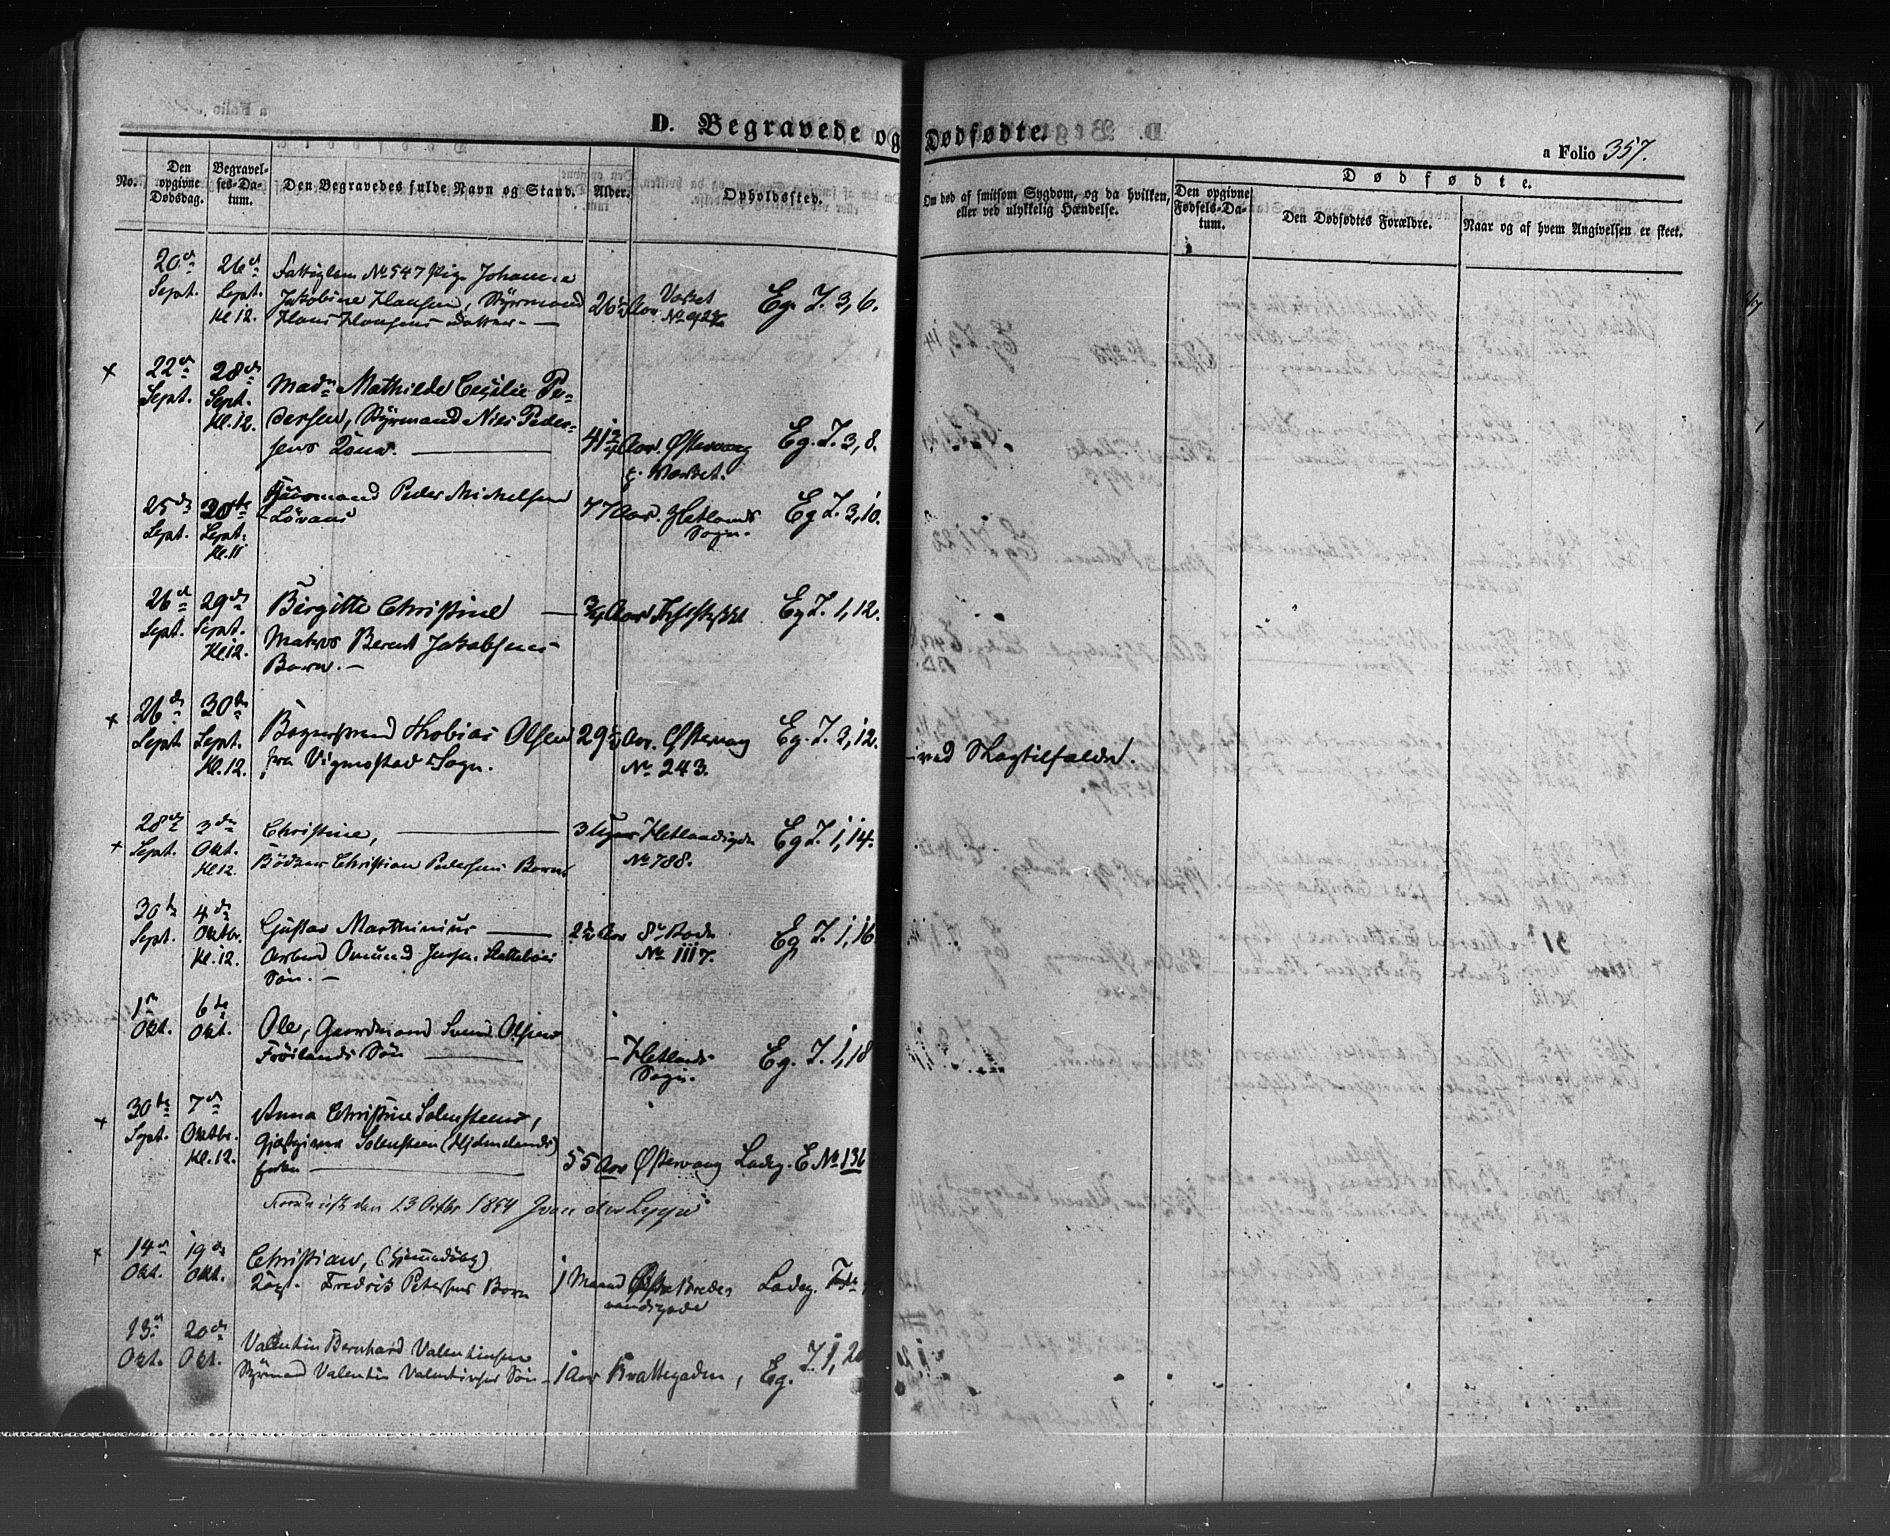 D. Begravede og Dødfødte.
a Folio 357.
No.
Den opgivne Dødsdag.
Begravelses-Datum.
Den Begravedes fulde Navn og Stand.
Alder.
Opholdssted.
Om død af smitsom Sygdom, og da hvilken, eller ved ulykkelig Hændelse.
Dødfødte.
Den opgivne Fødsels-Datum.
Den Dødfødtes Forældre.
Naar og af hvem Angivelsen er skeet.
20de 26de Fattiglem No 547 Pige Johanne
Sept. Sept. Jakobine Hansen, Styrmand 26 Aar Eg. I. 3, 6.
Kl 12. Hans Hansens Datter. —
x 22de 28de Madm Mathilde Cecilie Pe-
Sept. Sept. dersen, Styrmand Niels Peder-
Kl. 12. sens Kone. — 41 Aar. Østervaag Eg. I. 3, 8.
25de 30te Gaardmand Peder Michelsen
Sept. Sept. 77 Aar. Hetlands Eg I. 3, 10.
Kl. 11 Sogn.
26de 29de Birgitte Christine — 3/4 Aar Eg I. 1, 12.
Sept. Sept. Matros Bernt Jakobsens
Kl 12. Barn. —
x 26de 30te Thobias Olsen 29 Aar. Østervaag Eg. I. 3, 12. ved Slagtilfælde.
Sept. Sept. fra Vigmostad Sogn. No 243.
Kl. 12.
x 28de 3die Christine, — 3 Uger Hetlandsgaden Eg I. 1, 14.
Sept. Okt. Bødker Christian Pedersens Barn No 788.
Kl 12.
30te 4de Gustav Marthinius — 2 1/2 Aar 8de Rode Eg I. 1, 16
Sept. Oktbr. Arbmd Omund Jensen
Kl. 12. Søn. — No 1117.
1ste 6te Ole, Gaardmand Svend Olsen
Okt. Okt. Frøilands Søn — Hetlands Sogn. Eg. I. 1, 18
x 30te 7de Anna Christine Solensteen,
Sept. Oktbr. Gjæstgiver Solensteen (Hjelmelands)
Kl. 12. 55 Aar Østervaag Ladeg. E No 136
den 13 Octbr 1854
x 14de 19de Christian,
Okt. Okt. Fredrik Petersens Barn 1 Maaned Østre Bredevandsgade Ladeg.
13de 20de Valentin Bernhard Valentinsen
Okt. Okt. Styrmand Valentin Valentinsens Søn — 1 Aar Brattegaden, Eg. I. 1, 20